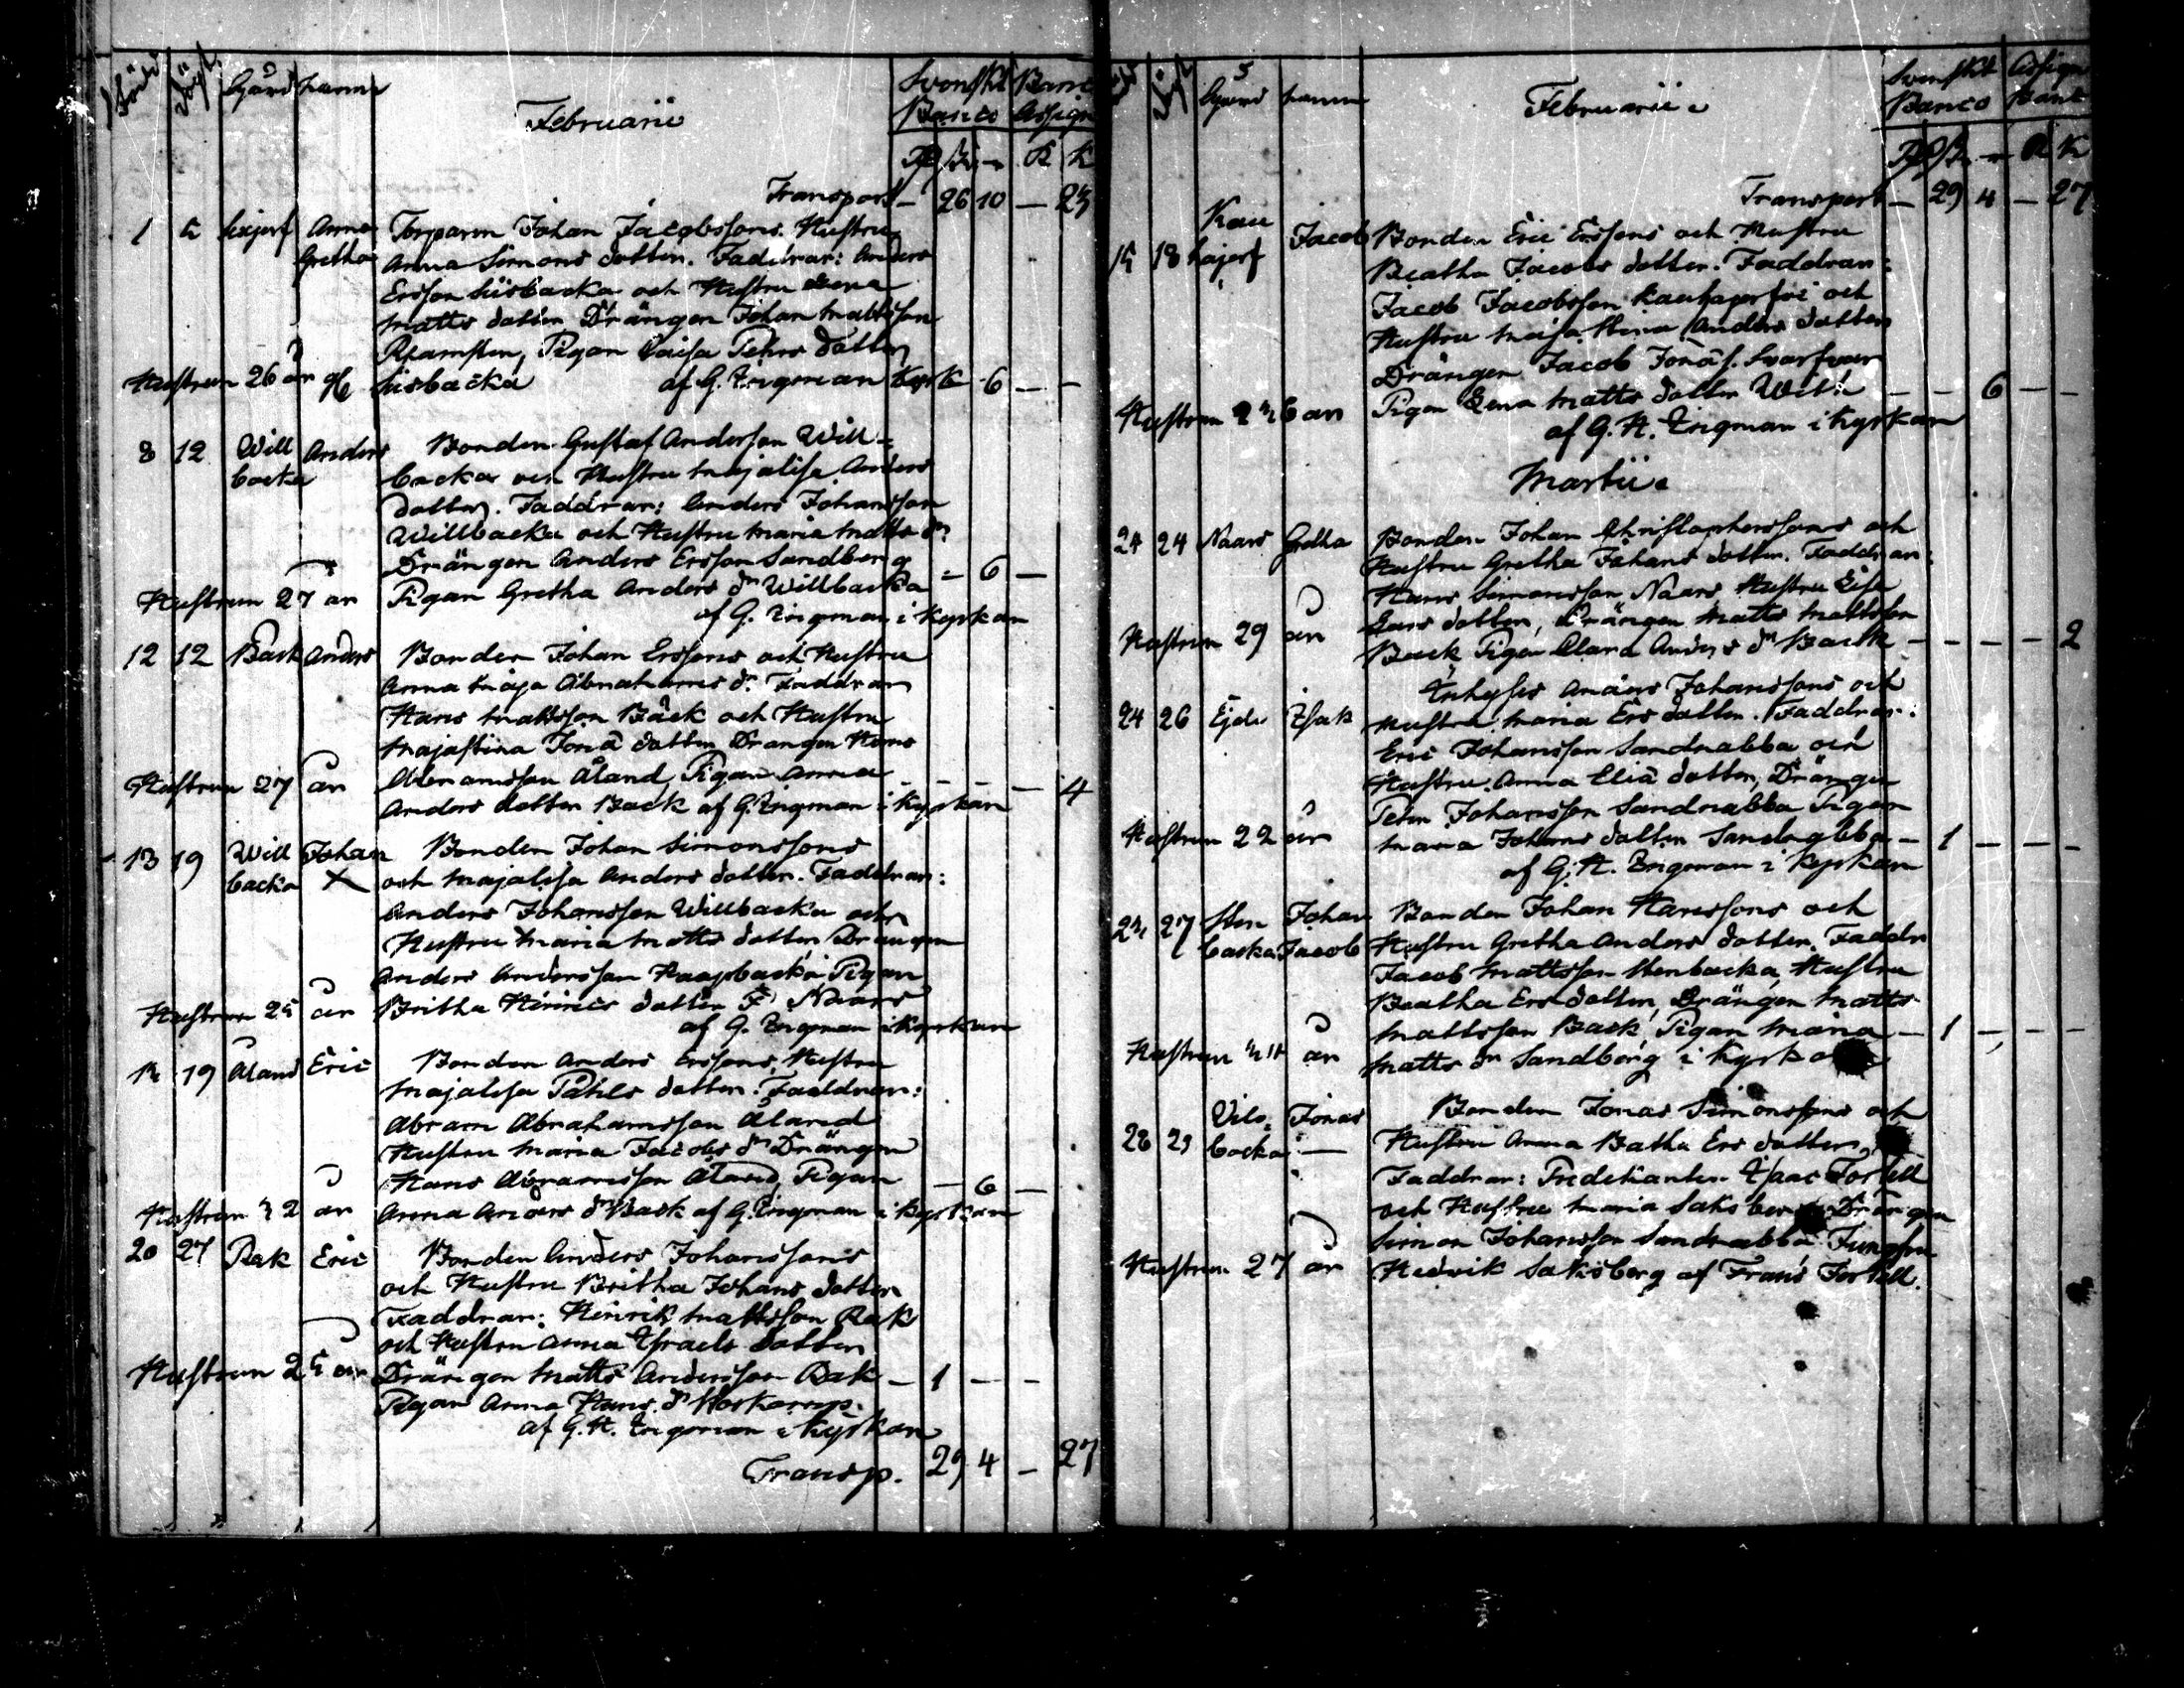 Född Döpt Gård namn Februarii Svenskt Banco Banc Assign
Transport — 26 10 — 23
1 5 Anna Torparen Johan Jacobssons Hustru
Gretha Anna Simons dotter. Faddrar: Anders
Ersson Siisbacka och Hustru Lena
Matts dotter Drängen Johan Mattsson
Pigan Caisa Pehrs dotter
Hustrun 26 år Siisbacka af G. Zigman — 6 — —
8 12 Will Anders Bonden Gustaf Andersson Will=
backa backa och Hustru Majalisa Anders
dotter. Faddrar: Anders Johansson
Willbacka och Hustru Maria Matts dr
Drängen Anders Ersson Sandberg
Hustrun 27 år Pigan Gretha Anders dr Willbacka — 6 —
af G. Zigman i Kyrkan
12 12 Back Anders Bonden Johan Erssons och Hustru
Anna Maja Abrahams dr. Faddrar
Hans Mattsson Bäck och Hustru
Majastina Jona dotter Drängen Hans
Hustrun 27 år Abramsson Åland, Pigan Anna — — — — 4
Anders dotter Back af G. Zigman i Kyrkan
13 19 Will Johan Bonden Johan Simonssons
backa X och Majalisa Anders dotter. Faddrar:
Anders Johansson Willbacka och
Hustru Maria Matts dotter Drängen
Anders Andersson Kaapbacka Pigan
Hustrun 25 år Britha Henrics dotter Naars
af G. Zigman i Kyrkan
19 Åland Eric Bonden Anders Erssons, Hustru
Majalisa Påhls dotter. Faddrar:
Abram Abrahamsson Åland
Hustru Maria Jacobs dr Drängen
Hans Abramsson Åland, Pigan — 6 —
Hustrun 32 år Anna Anders dr Back af G. Zigman i Kyrkan
20 27 Rak Eric Bonden Anders Johanssons
och Hustru Britha Johans dotter
Faddrar: Henrik Mattsson Rak
och Hustru Anna Israels dotter
Hustrun 25 år Drängen Matts Andersson Rak — 1 — —
Pigan Anna Hans dr
af G. H. Zigman i Kyrkan
Transp. 29 4 — 27
Gård namn Februarii Svenskt Banco Assign Banc
Transport — 29 4 — 27
15 18 Kau Jacob Bonden Eric Erssons och Hustru
hajerf Beatha Jacobs dotter. Faddrar:
Jacob Jacobsson Kauhajerfvi och
Hustru Maja Stina Anders dotter
Drängen Jacob Jonas. Svarfvar
Hustrun år Pigan Lena Matts dotter — — 6 — —
af G. H. Zigman i Kyrkan
Martii
24 24 Naars Gretha Bonden Johan Christophersons och
Hustru Gretha Johans dotter. Faddrar:
Hans Simonsson Naars Hustru Lisa
Lars dotter, Drängen Matts Mattsson
Hustrun 29 år Back Pigan Clara Anders dr Back — — — — 2
Inhyses Anders Johanssons och
24 26 Isak Hustru Maria Ers dotter. Faddrar:
Eric Johansson Sandnabba och
Hustru Anna Elia dotter, Drängen
Peter Johansson Sandnabba Pigan
Hustrun 22 år Maria Johans dotter Sandnabba — 1 — — —
af G. H. Zigman i Kyrkan
27 Sten Johan Bonden Johan Hanssons och
backa Jacob Hustru Gretha Anders dotter. Faddr
Jacob Mattsson Stenbacka, Hustru
Beatha Ers dotter, Drängen Matts
Mattsson Back, Pigan Maria — 1 — — —
Hustrun år Matts dr Sandberg i Kyrka
28 29 Vils Jonas Bonden Jonas Simonssons och
backa — Hustru Anna Batha Ers dotter,
Faddrar: Predikanten Isaac Forsell
och Hustru Maria Saksberg Drängen
Simon Johansson Sandnabba Jungfru
Hustrun 27 år Hedvik Saksberg af Frans Forsell.